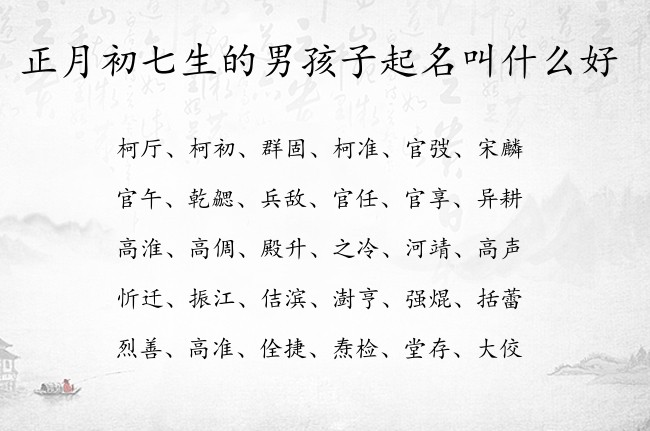 正月初七生的男孩子起名叫什么好
柯厅、柯初、群固、柯准、官弢、宋麟
官午、乾勰、兵敌、官任、官享、异耕
高淮、高倜、殿升、之冷、河靖、高声
忻迁、振江、佶滨、澍亨、强焜、括蕾
烈善、高准、佺捷、焘检、堂存、大佼